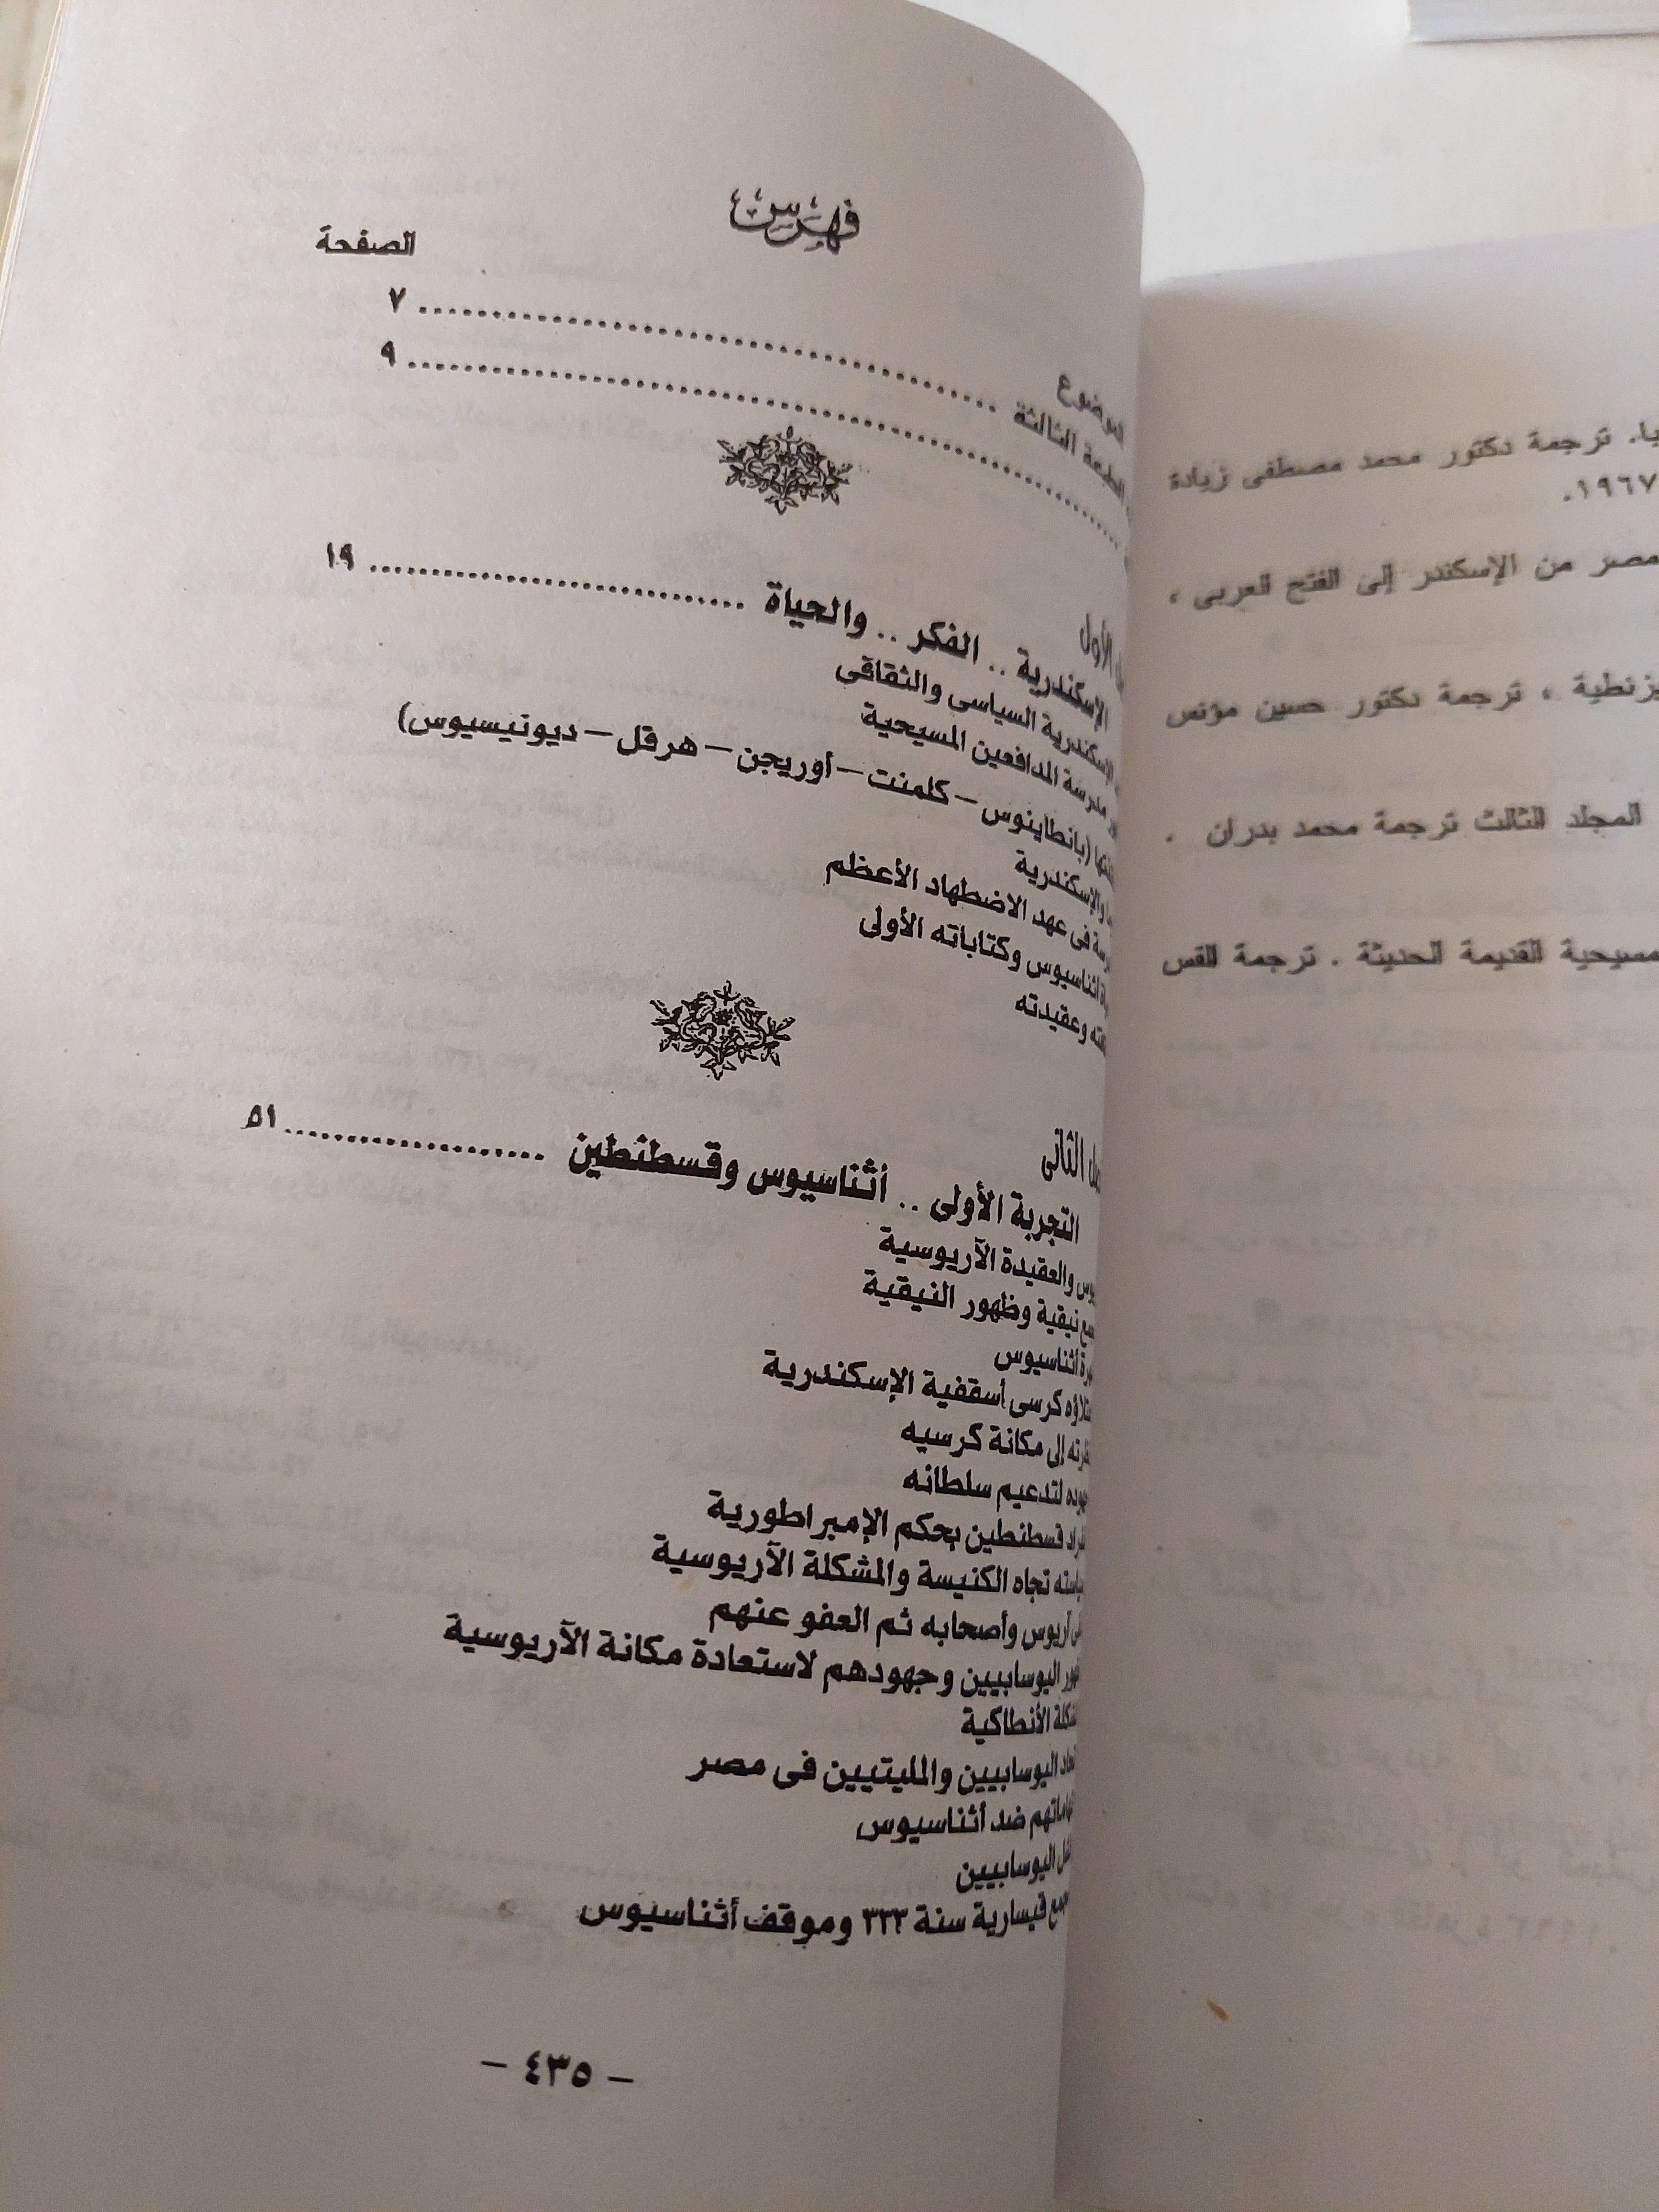 فهرس
الموضوع الصفحة
الطبعة الثالثة .......... ٧
.......... ٩
الأول
الإسكندرية .. الفكر .. والحياة .......... ١٩
الإسكندرية السياسى والثقافى
مدرسة المدافعين المسيحية
(بانطاينوس – كلمنت – أوريجن – هرقل – ديونيسيوس)
والإسكندرية
فى عهد الاضطهاد الأعظم
أثناسيوس وكتاباته الأولى
وعقيدته
الثانى
التجربة الأولى .. أثناسيوس وقسطنطين .......... ٥١
والعقيدة الآريوسية
نيقية وظهور النيقية
أثناسيوس
كرسى أسقفية الإسكندرية
إلى مكانة كرسيه
لتدعيم سلطانه
قسطنطين بحكم الإمبراطورية
تجاه الكنيسة والمشكلة الآريوسية
آريوس وأصحابه ثم العفو عنهم
اليوسابيين وجهودهم لاستعادة مكانة الآريوسية
الأنطاكية
اليوسابيين والمليتيين فى مصر
ضد أثناسيوس
اليوسابيين
قيسارية سنة ٣٣٣ وموقف أثناسيوس
– ٤٣٥ –
ترجمة دكتور محمد مصطفى زيادة
١٩٦٧.
مصر من الإسكندر إلى الفتح العربى ،
، ترجمة دكتور حسين مؤنس
المجلد الثالث ترجمة محمد بدران .
القديمة الحديثة . ترجمة القس